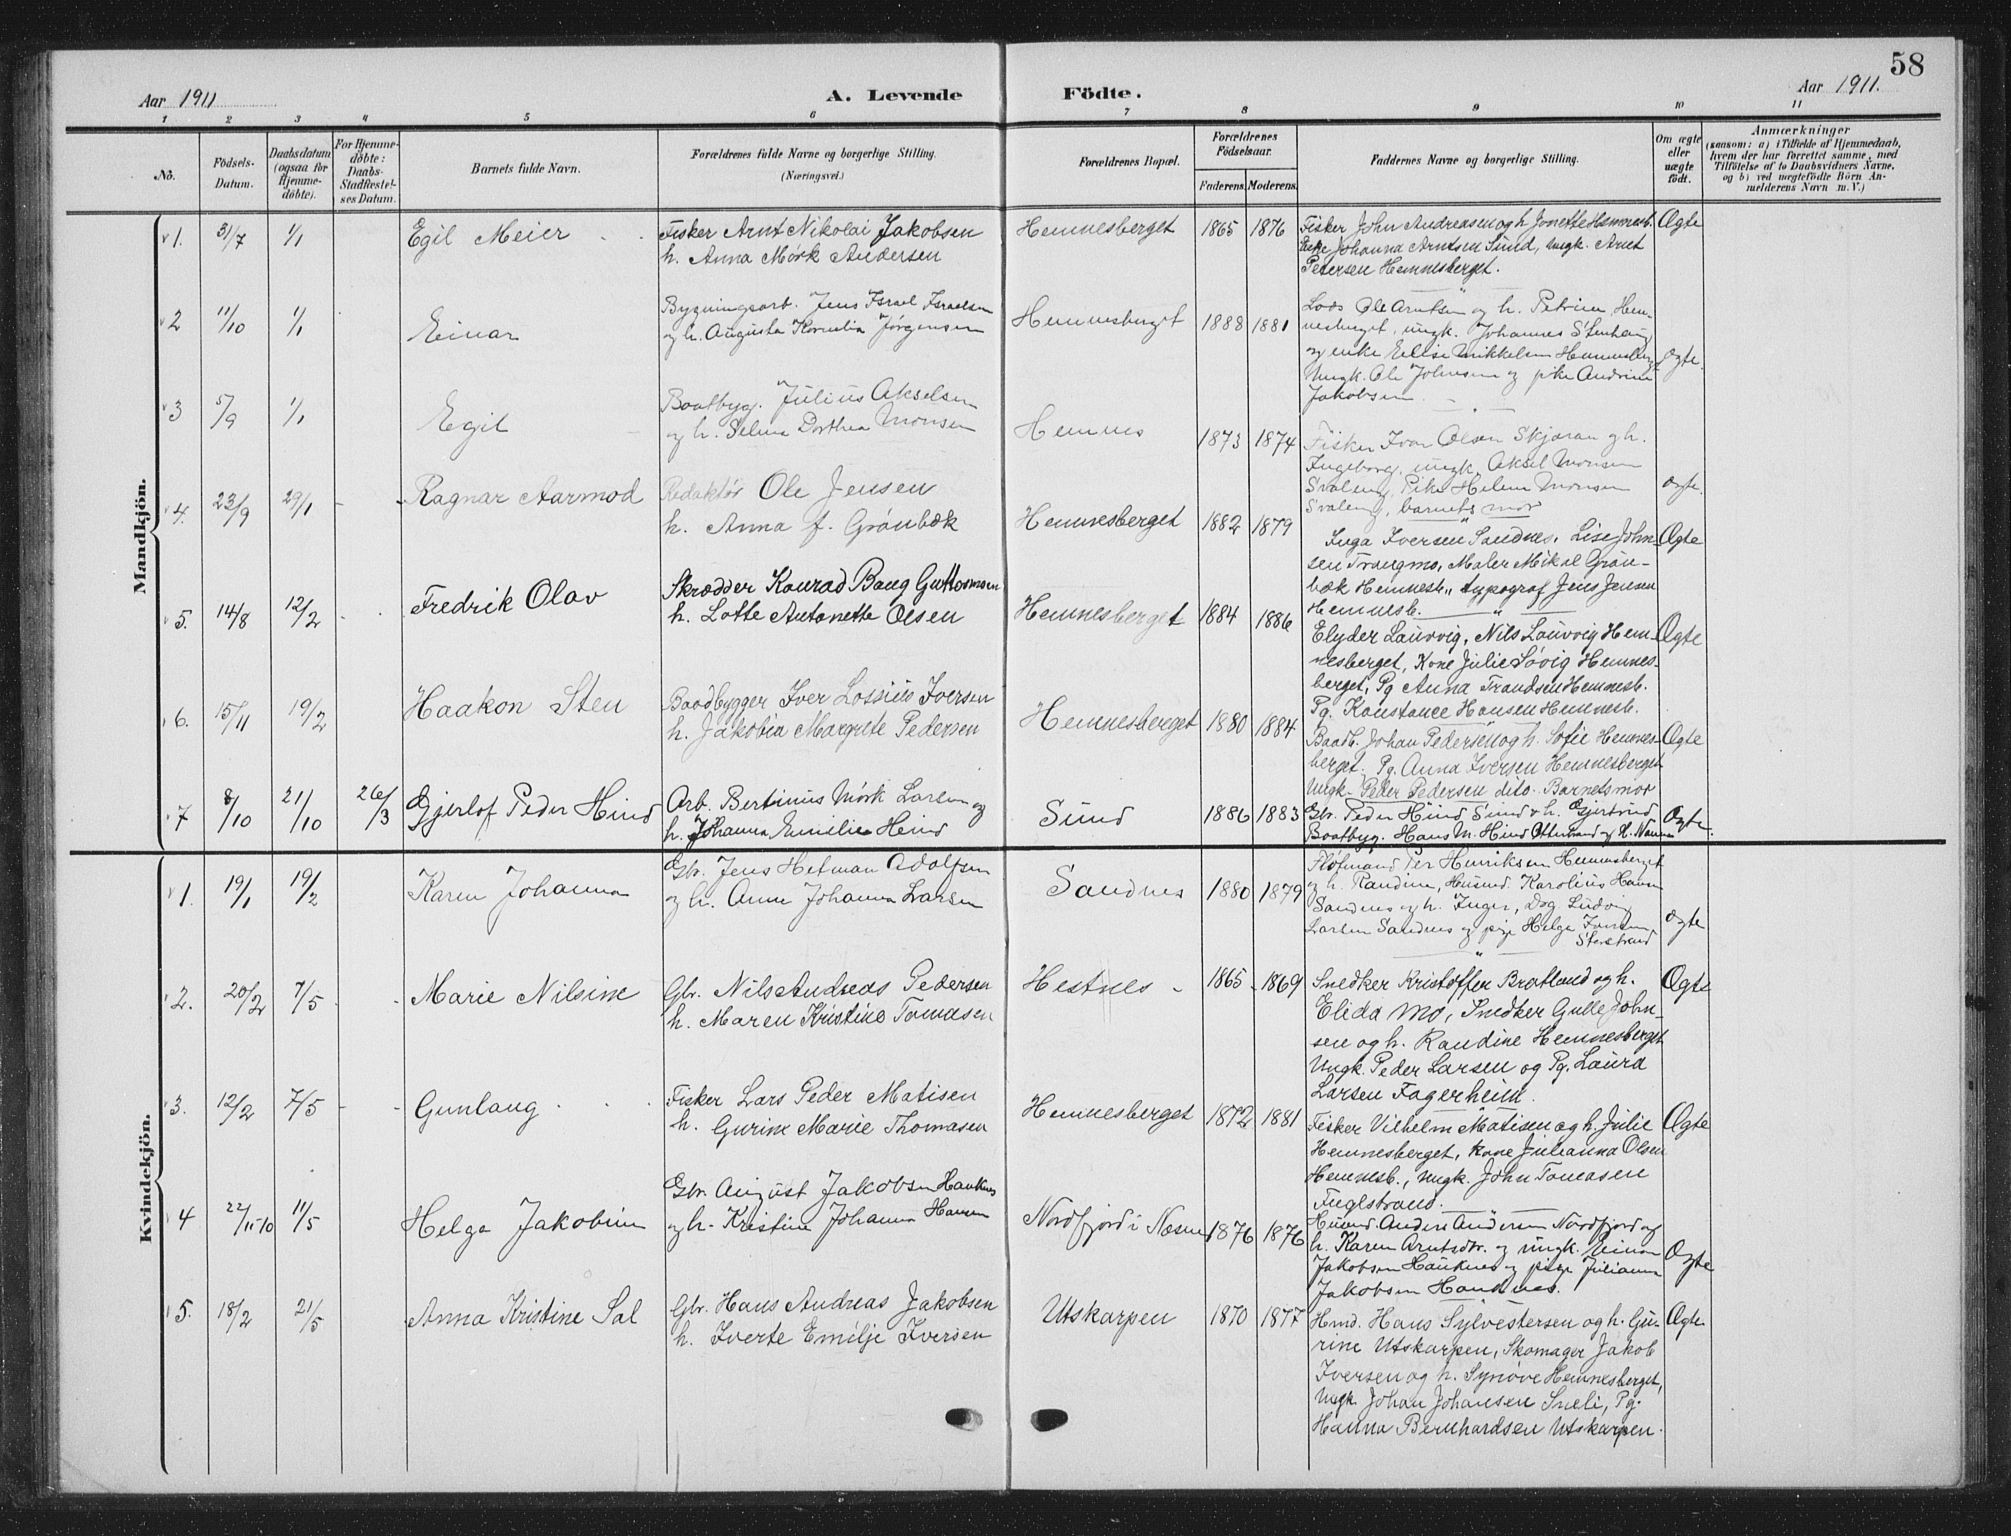 58
Aar 1911
A. Levende Födte.
Aar 1911.
1 2 3 4 5 6 7 8 9 10 11
No.
Födsels-Datum.
Daabsdatum (ogsaa for Hjemme-döbte).
For Hjemme-döbte: Daabs-Stadfæstel-ses Datum.
Barnets fulde Navn.
Forældrenes fulde Navne og borgerlige Stilling.
(Næringsvei.)
Forældrenes Bopæl.
Forældrenes Födselsaar.
Faderens. Moderens.
Faddernes Navne og borgerlige Stilling.
Om ægte eller uægte födt.
Anmærkninger
(saasom: a) i Tilfælde af Hjemmedaab,
hvem der har forrettet samme, med
Tilföielse af to Daabsvidners Navne,
og b) ved uægtefödte Börn An-
melderens Navn m. V.)
Mandkjön.
1. 31/7 1/1 Egil Meier Fisker Arnt Nikolai Jakobsen Hemnesberget 1865 1876 Fisker John Andreasen og h. Jonette Hemnesb. Ægte
h. Anna Mørk Andersen
Enke Johanna Arntsen Sund, ungk. Arnt
Petersen Hemnesberget.
2 11/10 1/1 Einar Bygningsarb. Jens Israel Israelsen Hemnesberget 1888 1881 Lods Ole Arntsen og h. Petrine, Hem-
og h. Augusta Kornelia Jørgensen
nesberget, ungk. Johannes Stenhaug
og enke Elise Mikkelsen Hemnesberg Ægte
Ungk. Ole Johnsen og pike Andrine
Jakobsen
3 5/9 1/1 Egil Baatbyg. Julius Akselsen Hemnes 1873 1874 Fisker Ivar Olsen Skjæran og h.
og h. Selma Dorthea Monsen
Ingeborg, ungk. Aksel Monsen
Svaleng, Pike Helene Monsen Ægte.
Svaleng, barnets mor
4. 23/9 29/1 Ragnar Aarmod Redaktør Ole Jensen Hemnesberget 1882 1879
h. Anna f. Grønbæk
Inga Iversen Sandnes, Lise John- Ægte
sen Trangmo, Maler Mikal Grøn-
bæk Hemnesb., typograf Jens Jensen
Hemnesb.
5. 14/8 12/2 Fredrik Olav Skrædder Konrad Bang Guttormsen Hemnesberget 1884 1886
h. Lotte Antonette Olsen
Elyder Lauvvig, Nils Lauvvig Hem- Ægte
nesberget, Kone Julie Løvig Hemnes-
berget, Pg Anna Trandsen Hemnesb.
Pg. Konstance Hansen Hemnesb.
6. 15/11 19/2 Haakon Sten Baadbygger Iver Lossius Iversen Hemnesberget 1880 1884
h. Jakobia Margrete Pedersen
Baadb. Johan Pedersen og h. Sofie Hemnes- Ægte
berget. Pg. Anna Iversen Hemnesberget
Ungk. Peter Pedersen dito. Barnets mor
7 8/10 21/10 26/3 Gjerlof Peder Hind Arb. Bertinus Mørk Larsen og Sund 1886 1883 Gbr. Peder Hind Sund & h. Gjertrud Ægte.
h. Johanna Emilie Heind
Baatbyg. Hans M. Hind
Kvindekjön.
1. 19/1 19/2 Karen Johanna Gbr. Jens Hetman Adolfsen Sandnes 1880 1879 Per Henriksen Hemnesberget
og h. Anne Johanna Larsen
og h. Randine, Husmd. Karolius Hansen
Sandnes og h. Inger, Dag Ludvig
Larsen Sandnes og pige Helga Iversen Ægte
Storstrand
2. 20/2 7/5 Marie Nilsine Gbr. Nils Andreas Pedersen Hestnes 1865 1869 Snedker Kristoffer Bratland og h. Ægte
h. Maren Kristine Tomasen
Elida Mo, Snedker Gulle John-
sen og h. Randine Hemnesberget
Ungk. Peder Larsen og Pg. Laura
Larsen Fagerheim.
3. 12/2 7/5 Gunlaug Fisker Lars Peder Matisen Hemnesberget 1872 1881
h. Gurine Marie Thomasen
Fisker Vilhelm Matisen og h. Julie Ægte
Hemnesberget, kone Julianna Olsen
Hemnesb., ungk. John Tomasen
Fuglstrand.
4 22/11-10 11/5 Helga Jakobine Gbr. August Jakobsen Hauknes Nordfjord i Næsne 1876 1876
og h. Kristine Johanna Hansen
Husmd. Anders Andersen Nordfjord og
h. Karen Arntsdtr. og ungk. Einar Ægte
Jakobsen Hauknes og pige Julianna
Jakobsen Hauknes.
5. 18/2 21/5 Anna Kristine Sal Gbr. Hans Andreas Jakobsen Utskarpen 1870 1877 Hmd. Hans Sylvestersen og h. Gu- Ægte
h. Iverte Emilje Iversen
rine Utskarpen, Skomager Jakob
Iversen og h. Synøve Hemnesberget,
Ungk. Johan Johansen Sneli, Pg.
Hanna Bernhardsen Utskarpen.